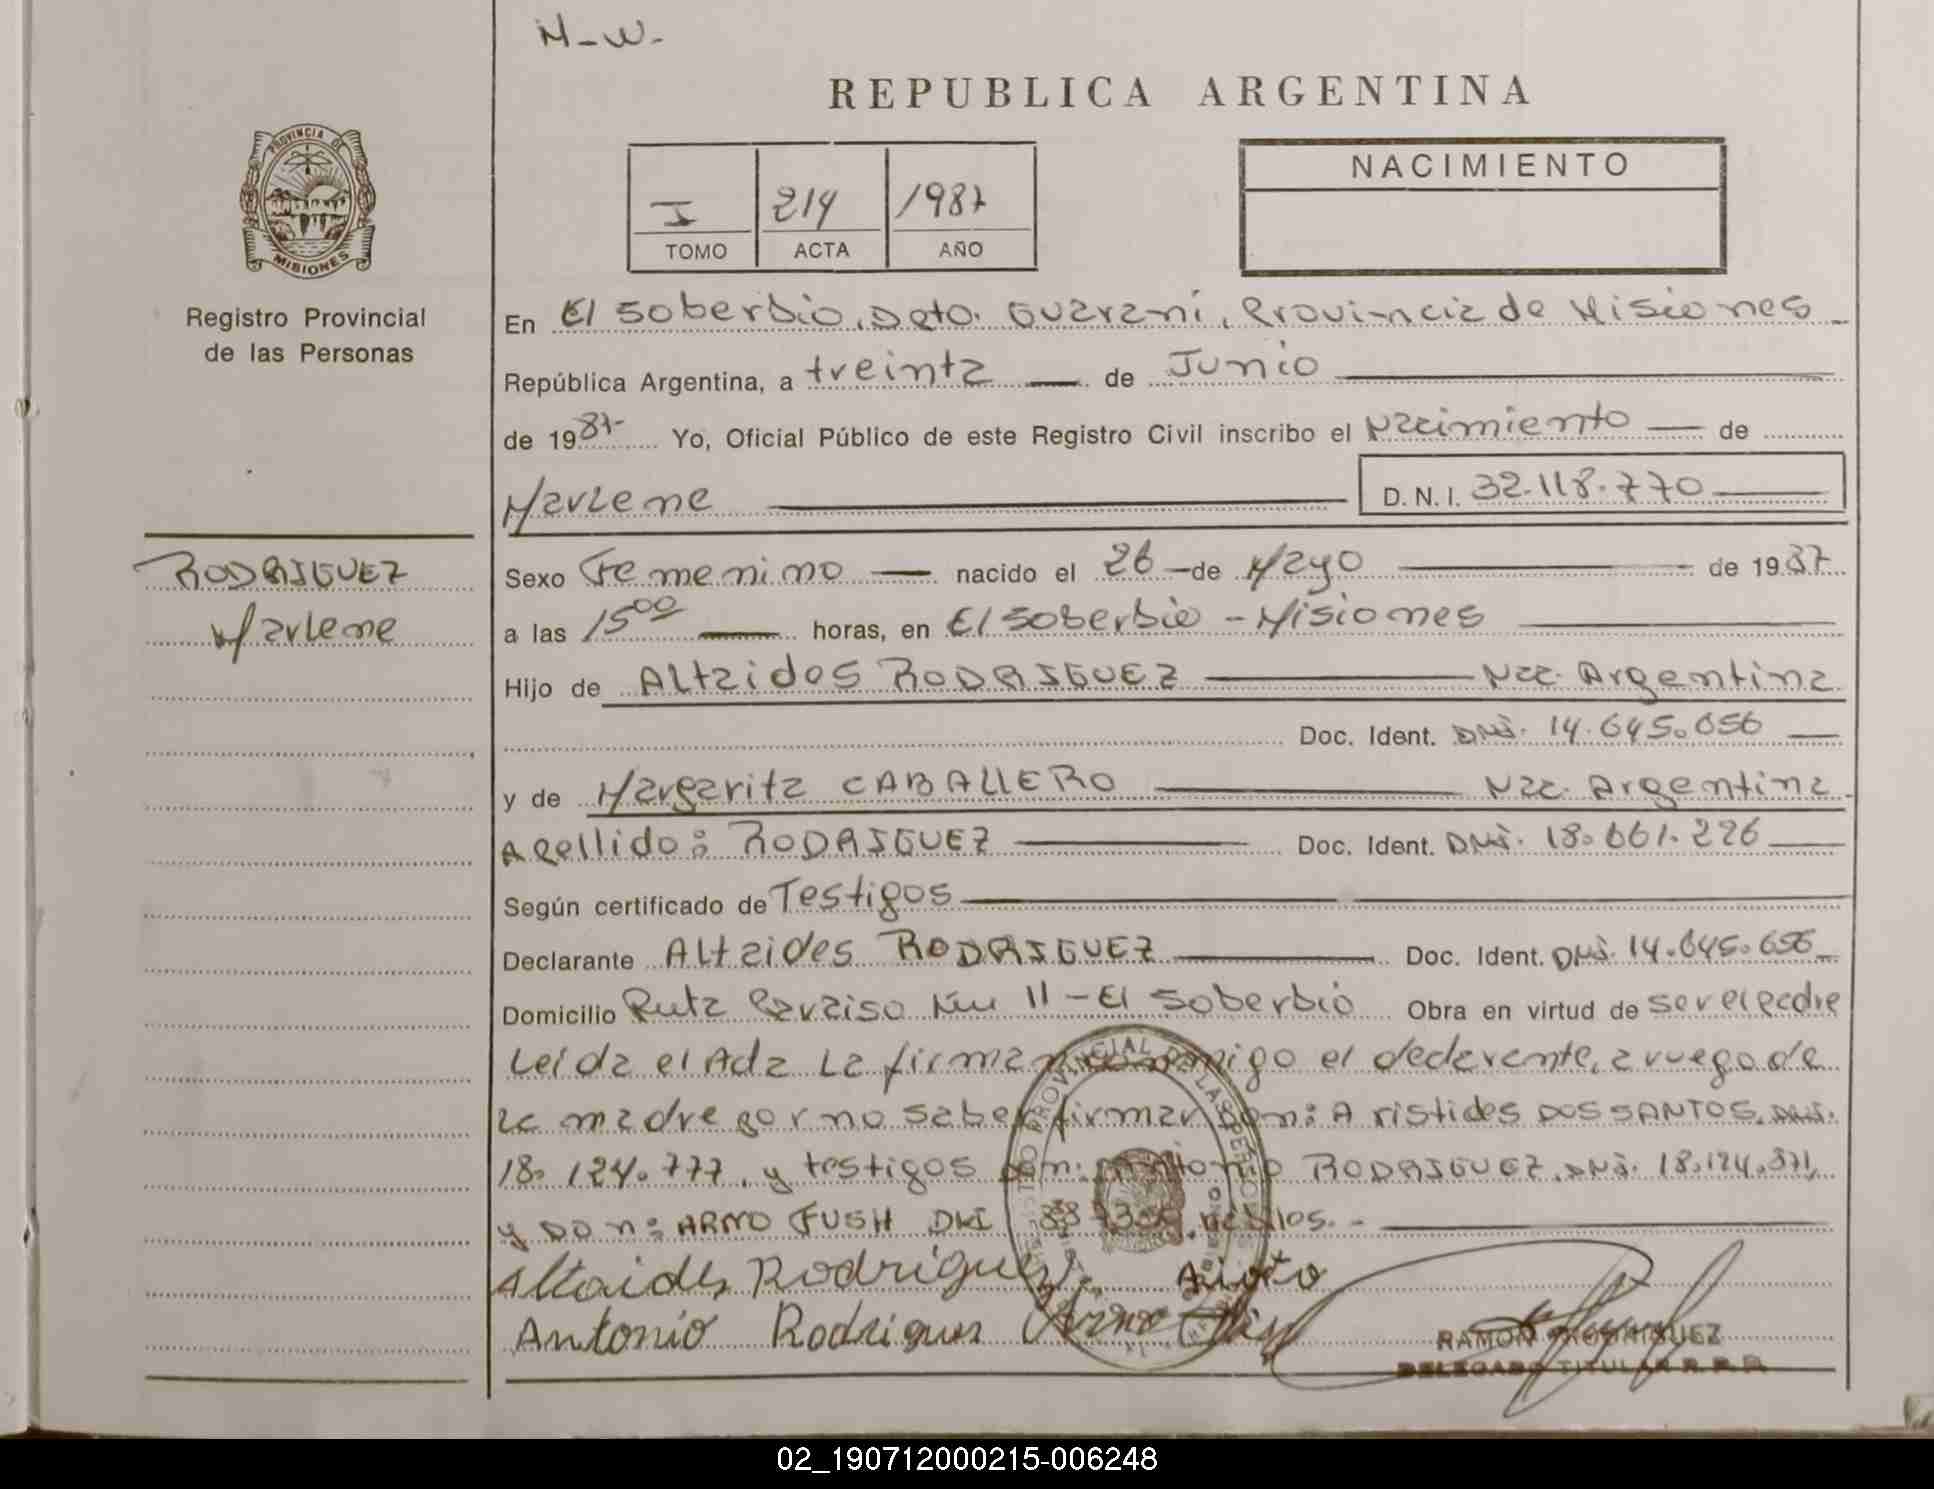 M-W-
REPUBLICA ARGENTINA
PROVINCIA DE
MISIONES
Registro Provincial
de las Personas
I 214 1987
TOMO ACTA AÑO
NACIMIENTO
En El Soberbio, Dpto. Guaraní, Provincia de Misiones
República Argentina, a treinta de Junio
de 1987 Yo, Oficial Público de este Registro Civil inscribo el Nacimiento de
Marlene D.N.I. 32.118.770
RODRIGUEZ
Marlene
Sexo Femenino nacido el 26 de Mayo de 1987
a las 15⁰⁰ horas, en El Soberbio - Misiones
Hijo de Altaides RODRIGUEZ Nac. Argentina
Doc. Ident. DNI. 14.645.656
y de Margarita CABALLERO Nac. Argentina
Apellido: RODRIGUEZ Doc. Ident. DNI. 18.661.226
Según certificado de Testigos
Declarante Altaides RODRIGUEZ Doc. Ident. DNI. 14.645.656
Domicilio Ruta Paraiso Km 11 - El Soberbio Obra en virtud de ser el padre
Leida el Acta La firman conmigo el declarante, a ruego de
la madre por no saber firmar Don: Aristides DOS SANTOS, DNI.
18.124.777, y testigos Don: Antonio RODRIGUEZ, DNI. 18.124.371,
y Don: ARNO FUSH DNI
Altaides Rodriguez
Antonio Rodriguez Arno
RAMON RODRIGUEZ
DELEGADO TITULAR R.P.P.
02_190712000215-006248